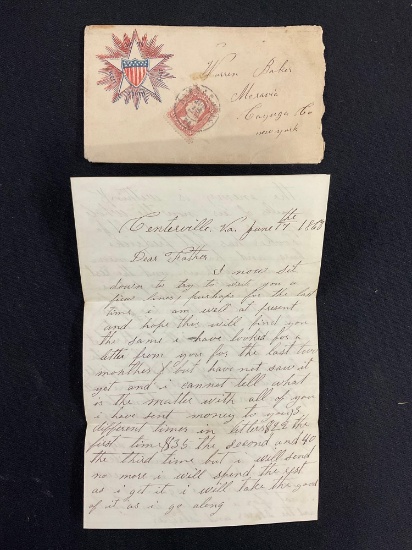 Warren Baker
Moravia
Cayuga Co
new york
Centerville, Va, June 17 the 1863
Dear Father
I now sit
down to try to rite you a
few lines perhaps for the last
time i am well at present
and hope this will find you
the same i have looked for a
letter from you for the last two
months but have not saw it
yet and i cannot tell what
is the matter with all of you
i have sent money to you 3
different times in letters $22 the
first time $35 the second and 40
the third time but i will send
no more i will spend the rest
as i get it i will take the good
of it as i go along